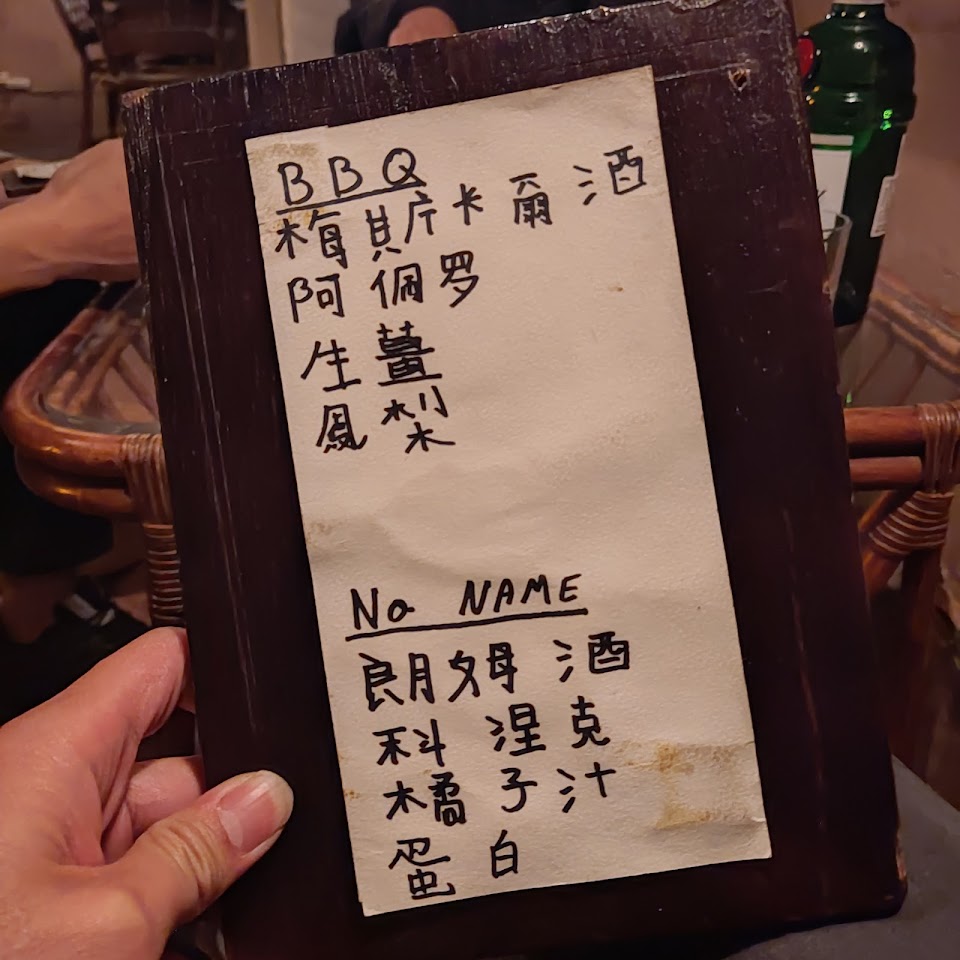 BBQ
梅斯卡爾酒
阿佩罗
生薑
鳳梨
No NAME
朗姆酒
科涅克
橘子汁
蛋白